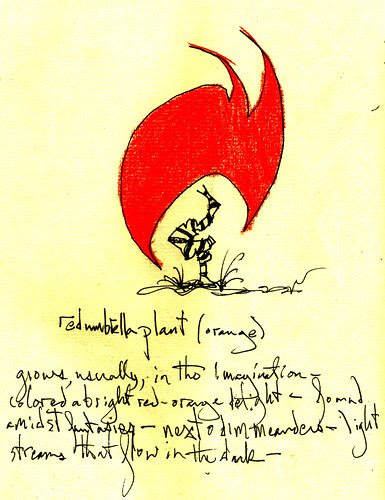 redumbrella plant (orange)
grows, usually, in the imagination –
colored a bright red-orange delight – found
amidst fantasies – next to dim meanders – light
streams that flow in the dark –